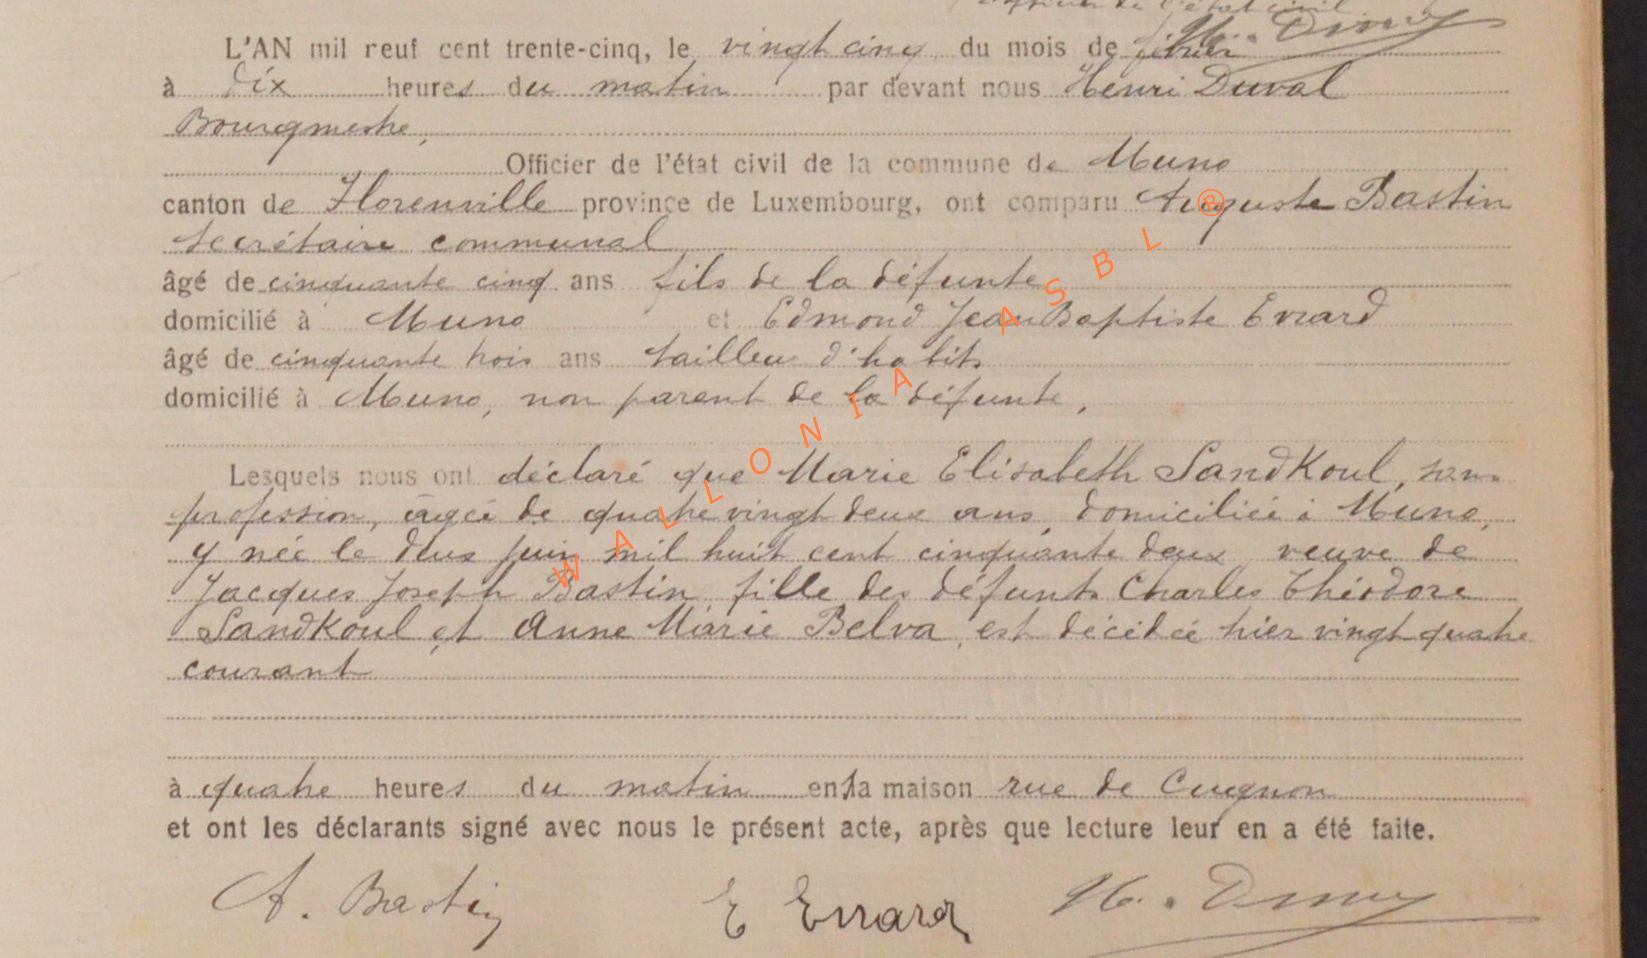 officier de l'état civil
H. Duval
L'AN mil neuf cent trente-cinq, le vingt cinq du mois de février
à dix heures du matin par devant nous Henri Duval
Bourgmestre,
Officier de l'état civil de la commune de Muno
canton de Florenville province de Luxembourg, ont comparu Auguste Bastin
secrétaire communal
âgé de cinquante cinq ans fils de la défunte
domicilié à Muno et Edmond Jean Baptiste Errard
âgé de cinquante trois ans tailleur d'habits
domicilié à Muno, non parent de la défunte,
Lesquels nous ont déclaré que Marie Elisabeth Sandkoul, sans
profession, âgée de quatre vingt deux ans, domiciliée à Muno,
y née le deux juin mil huit cent cinquante deux veuve de
Jacques Joseph Bastin, fille des défunts Charles Théodore
Sandkoul et Anne Marie Belva, est décédée hier vingt quatre
courant
à quatre heures du matin en sa maison rue de Cugnon
et ont les déclarants signé avec nous le présent acte, après que lecture leur en a été faite.
A. Bastin E Errard H. Duval
WALLONIA ASBL ®